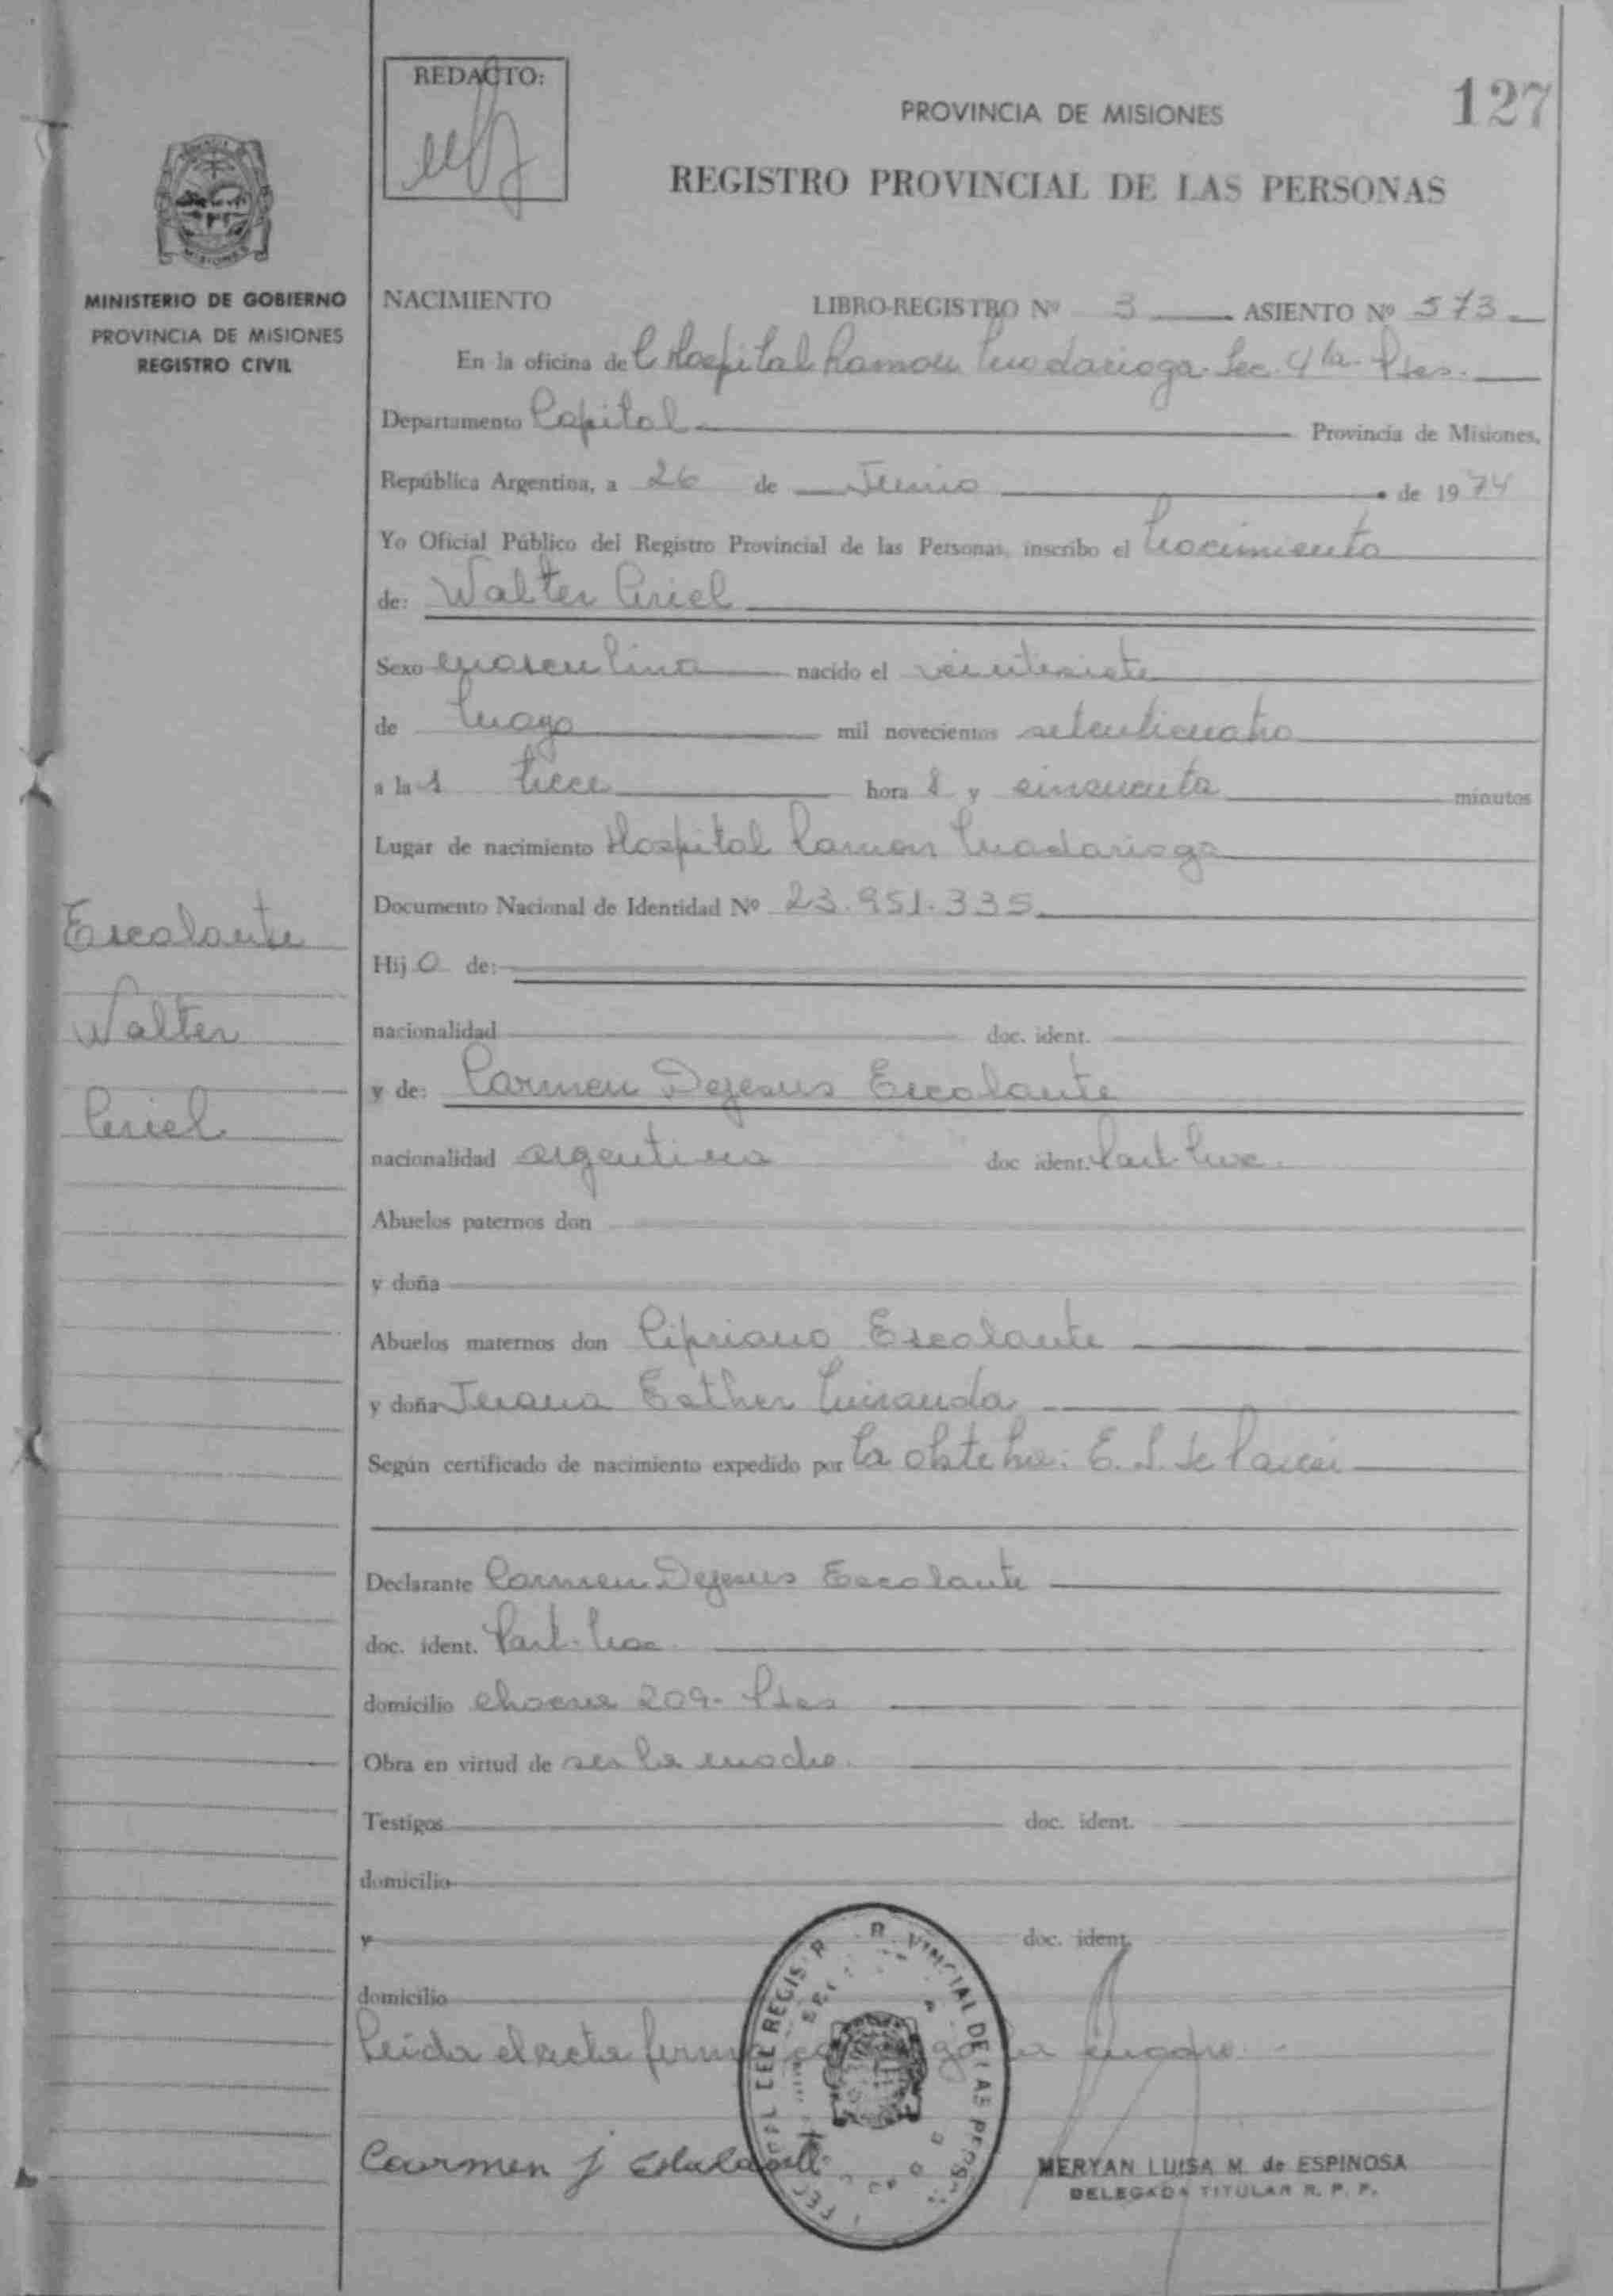 REDACTO:
127
PROVINCIA DE MISIONES
REGISTRO PROVINCIAL DE LAS PERSONAS
MINISTERIO DE GOBIERNO
PROVINCIA DE MISIONES
REGISTRO CIVIL
NACIMIENTO LIBRO-REGISTRO Nº 3 ASIENTO Nº 573
En la oficina de Hospital Ramon Madariaga Sec. 4ta. Psas.
Departamento Capital Provincia de Misiones,
República Argentina, a 26 de Junio de 1974
Yo Oficial Público del Registro Provincial de las Personas, inscribo el nacimiento
de: Walter Ariel
Sexo masculino nacido el veintisiete
de mayo mil novecientos setenticuatro
a las trece horas y cincuenta minutos
Lugar de nacimiento Hospital Ramon Madariaga
Documento Nacional de Identidad Nº 23.951.335
Hijo de:
nacionalidad doc. ident.
y de: Carmen Dejesus Escalante
nacionalidad argentina doc ident. Part. Nac.
Abuelos paternos don
y doña
Abuelos maternos don Cipriano Escalante
y doña Juana Esther Miranda
Según certificado de nacimiento expedido por la obstetra: E. S. de
Declarante Carmen Dejesus Escalante
doc. ident. Part. Nac.
domicilio 209- Psas
Obra en virtud de ser la madre.
Testigos doc. ident.
domicilio
y doc. ident.
domicilio
Leida el acta la madre.
Carmen J
MERYAN LUISA M. de ESPINOSA
DELEGADA TITULAR R. P. P.
Escalante
Walter
Ariel